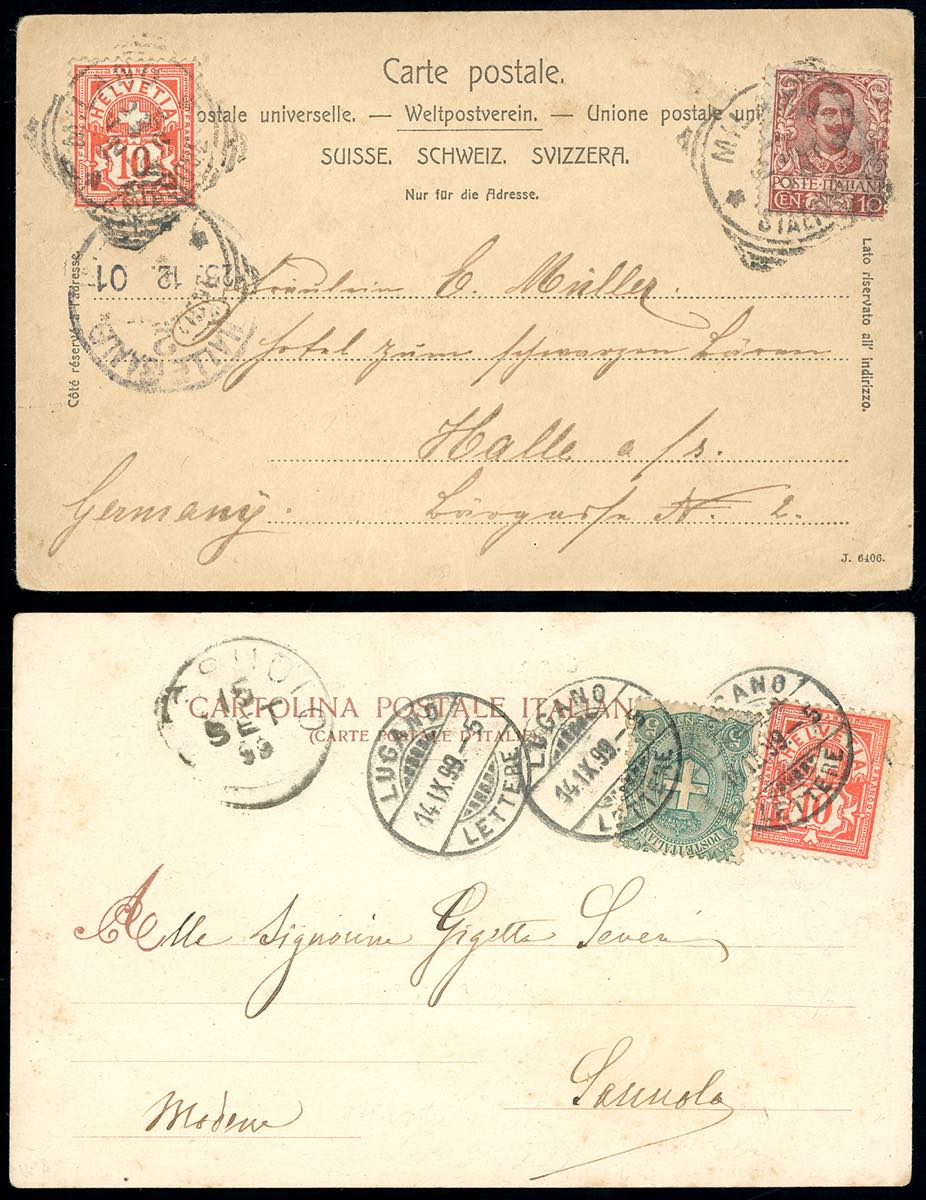 Carte postale.
HELVETIA
10
FRANCO
ostale universelle. — Weltpostverein. — Unione postale uni
SUISSE. SCHWEIZ. SVIZZERA.
Nur für die Adresse.
POSTE·ITALIANE
CEN 10
STAZ
Côté réservé à l'adresse.
Lato riservato all' indirizzo.
23. 12. 01
HALLE (SAALE)
Fräulein C. Müller.
Hotel zum schwarzen Bären
Halle a/s.
Germany.
Bärgasse N. 2.
J. 6406.
CARTOLINA POSTALE ITALIAN
(CARTE POSTALE D'ITALIE)
LUGANO
14.IX.99.-5
LETTERE
LUGANO
14.IX.99.-5
LETTERE
GANO
LETTERE
POSTE ITALIANE
HELVETIA
10
Alle Signorine Gigetta Severi
Modena